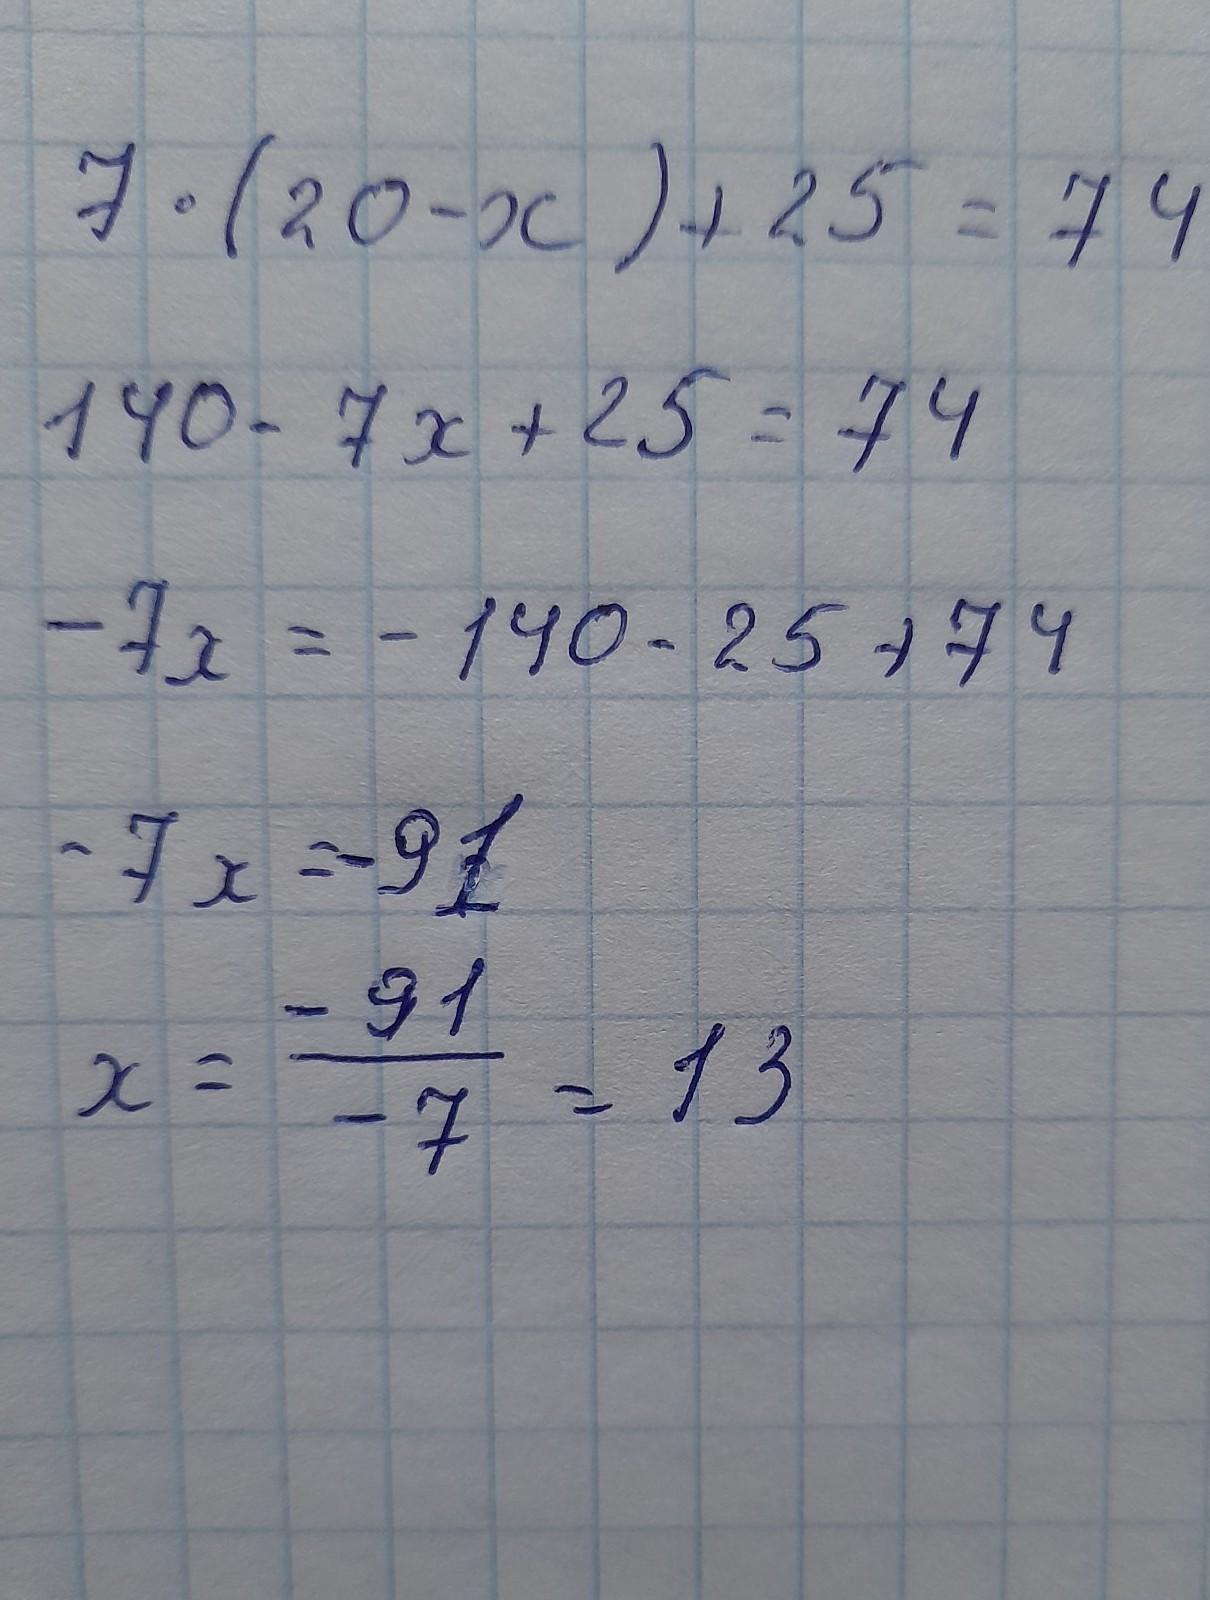 7 · (20 - x) + 25 = 74
140 - 7x + 25 = 74
-7x = -140 - 25 + 74
-7x = -91
x = -91/-7 = 13